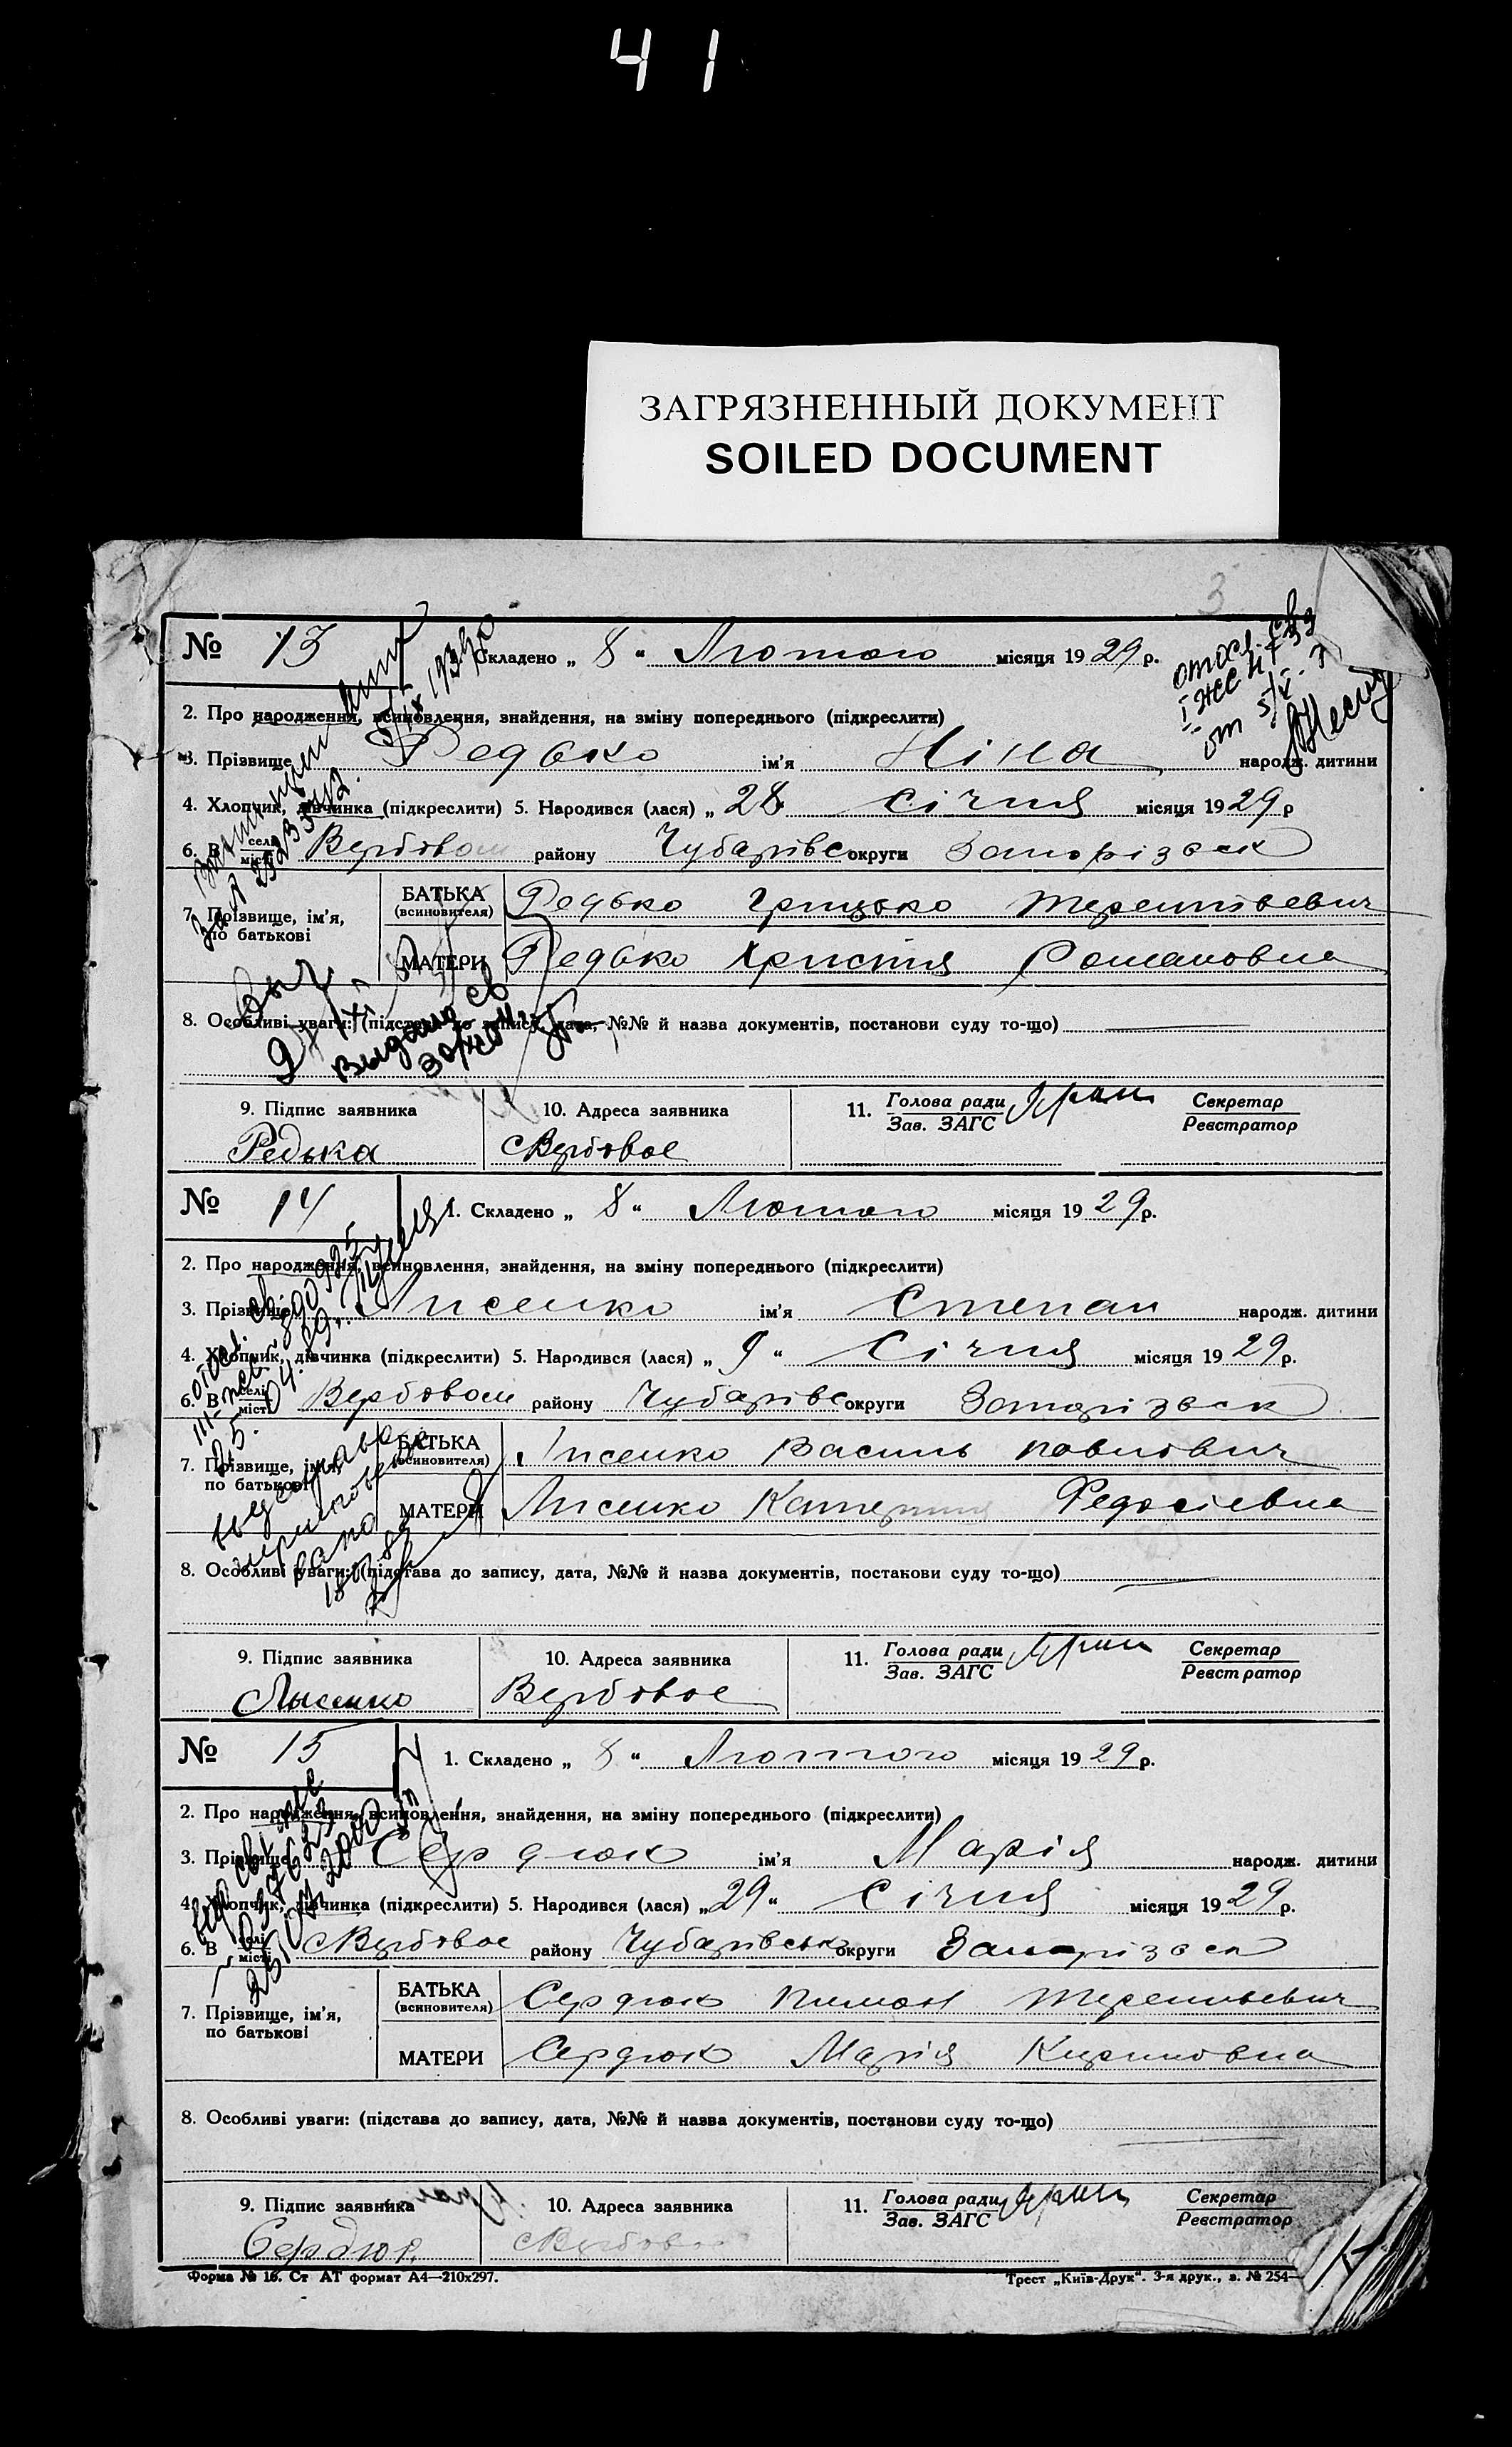 41
ЗАГРЯЗНЕННЫЙ ДОКУМЕНТ
SOILED DOCUMENT
3
№ 13 Складено „ 8 “ Лютого місяця 1929 р.
2. Про народження, всиновлення, знайдення, на зміну попереднього (підкреслити)
3. Прізвище Редько ім'я Ніна народж. дитини
4. Хлопчик, дівчинка (підкреслити) 5. Народився (лася) „ 28 січня місяця 1929 р
6. В селі місті Вербовом району Чубарівс округи Запорізськ
7. Прізвище, ім'я, по батькові БАТЬКА (всиновителя) Редько Грицько Терентівевич
МАТЕРИ Редько Христя Романовна
8. Особливі уваги: (підстава до запису, дата, №№ й назва документів, постанови суду то-що)
9. Підпис заявника 10. Адреса заявника 11. Голова ради Зав. ЗАГС Секретар Реєстратор
Редька с Вербовое
№ 14 1. Складено „ 8 “ Лютого місяця 1929 р.
2. Про народження, всиновлення, знайдення, на зміну попереднього (підкреслити)
3. Прізвище Лисенко ім'я Степан народж. дитини
4. Хлопчик, дівчинка (підкреслити) 5. Народився (лася) „ 9 “ Січня місяця 1929 р.
6. В селі місті Вербовом району Чубарівс округи Запорізськ
7. Прізвище, ім'я, по батькові БАТЬКА (всиновителя) Лисенко Василь Павлович
МАТЕРИ Лисенко Катерина Федосіевна
8. Особливі уваги: (підстава до запису, дата, №№ й назва документів, постанови суду то-що)
9. Підпис заявника 10. Адреса заявника 11. Голова ради Зав. ЗАГС Секретар Реєстратор
Лысенко Вербовое
№ 15 1. Складено „ 8 “ Лютого місяця 1929 р.
2. Про народження, всиновлення, знайдення, на зміну попереднього (підкреслити)
3. Прізвище Сердюк ім'я Марія народж. дитини
4. Хлопчик, дівчинка (підкреслити) 5. Народився (лася) „ 29 “ Січня місяця 1929 р.
6. В селі місті с Вербовое району Чубарівськ округи Запорізськ
7. Прізвище, ім'я, по батькові БАТЬКА (всиновителя) Сердюк Пимон Терентьевич
МАТЕРИ Сердюк Марія Кириловна
8. Особливі уваги: (підстава до запису, дата, №№ й назва документів, постанови суду то-що)
9. Підпис заявника 10. Адреса заявника 11. Голова ради Зав. ЗАГС Секретар Реєстратор
Сердюк с Вербовое
Форма № 16. Ст АТ формат А4—210х297. Трест „Київ-Друк“. 3-я друк., з. № 254—